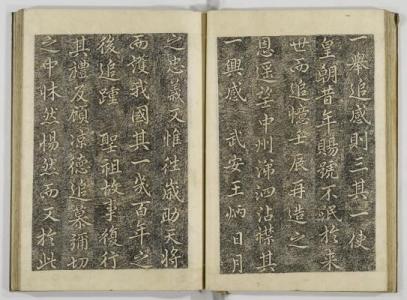 一舉追感則三其一使
皇朝昔年賜號不泯於來
世而追憶壬辰再造之
恩遥望中州涕泗沾襟其
一興感 武安王炳日月
之忠義又惟往歲助天將
而護我國其一幾百年之
後追踵 聖祖故事復行
其禮及顧凉德追慕彌切
之中怵然惕然而又於此